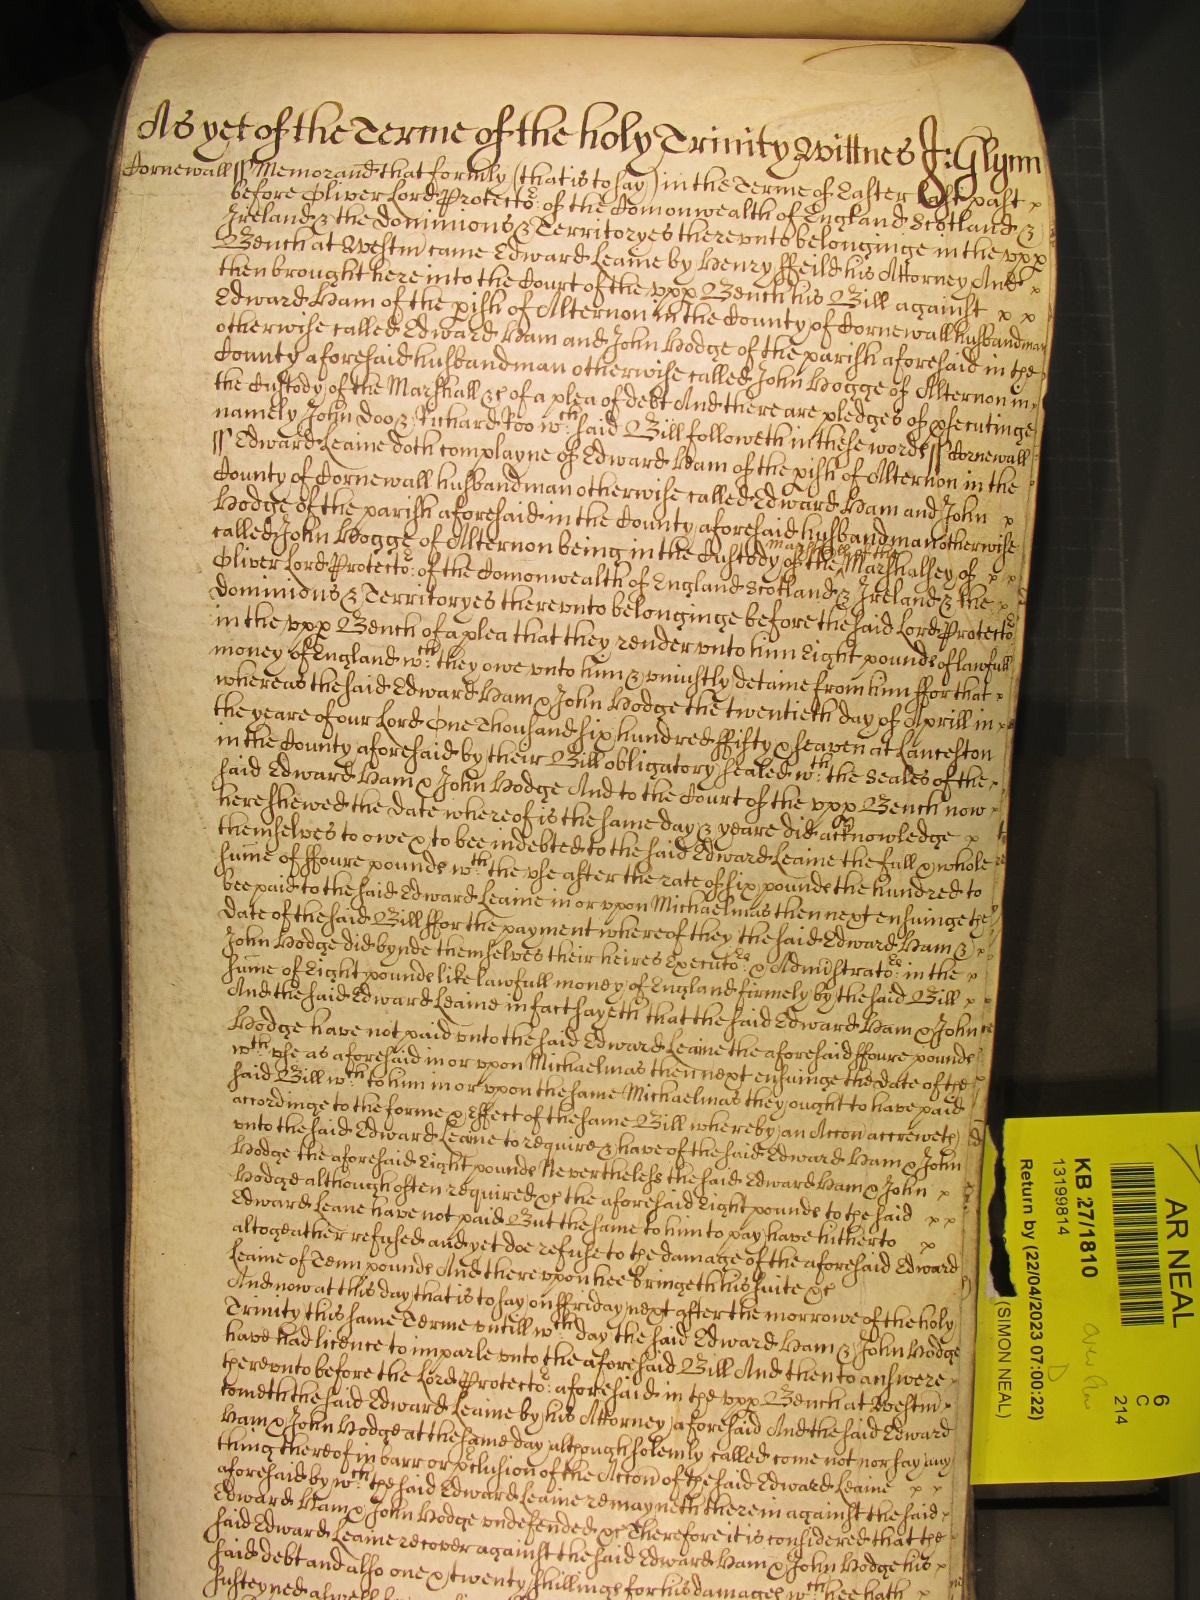 As yet of the Terme of the holy Trinity Wittnes J: Glynn
Cornewall ss Memorand that formly (that is to say) in the Terme of Easter last past
before Oliver Lord Protector of the Comonwealth of England Scotland &
Ireland & the Dominions & Territoryes therevnto belonginge in the vpp
Bench at Westm came Edward Leaine by Henry ffeild his Attorney And
then brought here into the Court of the vpp Bench his Bill against
Edward Ham of the pish of Alternon in the County of Cornewall husbandman
otherwise called Edward Ham and John Hodge of the parish aforesaid in the
County aforesaid husbandman otherwise called John Hogge of Alternon in
the Custody of the Marshall &c of a plea of debt And there are pledges of psecutinge
namely John Doo & Richard Roo wch said Bill followeth in these words ss Cornewall
ss Edward Leaine doth complayne of Edward Ham of the pish of Alternon in the
County of Cornewall husbandman otherwise called Edward Ham and John
Hodge of the parish aforesaid in the County aforesaid husbandman otherwise
called John Hogge of Alternon being in the Custody of the Marshall of the Marshalsey of
Oliver Lord Protector of the Comonwealth of England Scotland & Ireland & the
Dominions & Territoryes therevnto belonginge before the said Lord Protector
in the vpp Bench of a plea that they render vnto him Eight pounds of lawfull
money of England wch they owe vnto him & vniustly detaine from him ffor that
whereas the said Edward Ham & John Hodge the twentieth day of Aprill in
the yeare of our Lord One Thousand six hundred ffifty & seaven at Lanceston
in the County aforesaid by their Bill obligatory sealed wth the Seales of the
said Edward Ham & John Hodge And to the Court of the vpp Bench now
here shewed the Date whereof is the same day & yeare did acknowledge
themselves to owe & to bee indebted to the said Edward Leaine the full & whole
sume of ffoure pounds wth the vse after the rate of six pounds the hundred to
bee paid to the said Edward Leaine in or vpon Michaelmas then next ensuinge the
Date of the said Bill ffor the payment whereof they the said Edward Ham &
John Hodge did bynde themselves their heires Executors & Administrators in the
sume of Eight pounds like lawfull money of England firmely by the said Bill
And the said Edward Leaine in fact sayeth that the said Edward Ham & John
Hodge have not paid vnto the said Edward Leaine the aforesaid ffoure pounds
wth vse as aforesaid in or vpon Michaelmas then next ensuinge the Date of the
said Bill wch to him in or vpon the same Michaelmas they ought to have paid
accordinge to the forme & Effect of the same Bill whereby an Accon accreweth
vnto the said Edward Leaine to require & have of the said Edward Ham & John
Hodge the aforesaid Eight pounds Nevertheless the said Edward Ham & John
Hodge although often required &c the aforesaid Eight pounds to the said
Edward Leane have not paid But the same to him to pay have hitherto
altogeather refused and yet doe refuse to the damage of the aforesaid Edward
Leaine of Tenn pounds And therevpon hee bringeth his suite &c
And now at this day that is to say on ffriday next after the morrowe of the holy
Trinity this same Terme vntill wch day the said Edward Ham & John Hodge
have had licence to imparle vnto the aforesaid Bill And then to answere
therevnto before the Lord Protector aforesaid in the vpp Bench at Westm
cometh the said Edward Leaine by his Attorney aforesaid And the said Edward
Ham & John Hodge at the same day although solemly called come not nor say any
thing thereof in barr or pclusion of the Accon of the said Edward Leaine
aforesaid by wch the said Edward Leaine remayneth therein against the said
Edward Ham & John Hodge vndefended &c Therefore it is considered that the
said Edward Leaine recover against the said Edward Ham & John Hodge his
said debt and also one & twenty shillings for his damages wch hee hath
susteyned aswell
AR NEAL
6
C
214
KB 27/1810
13199814
Return by (22/04/2023 07:00:22)
(SIMON NEAL)